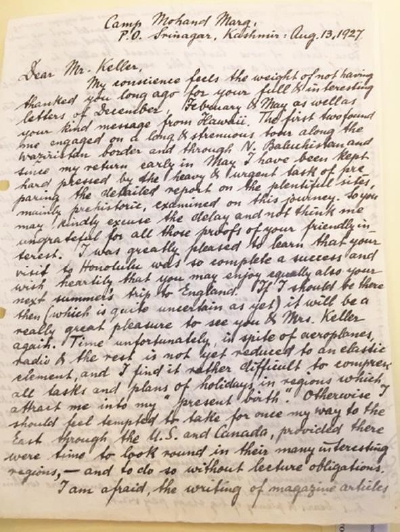 Camp Mohand Marg,
P.O. Srinagar, Kashmir: Aug. 13, 1927
Dear Mr. Keller,
My conscience feels the weight of not having
thanked you long ago for your full & interesting
letters of December, February & May as well as
your kind message from Hawaii. The first two found
me engaged on a long & strenuous tour along the
Waziristan border and through N. Baluchistan, and
since my return early in May I have been kept
hard pressed by the heavy & urgent task of pre
paring the detailed report on the plentiful sites,
mainly prehistoric, examined on this journey. So you
may kindly excuse the delay and not think me
ungrateful for all those proofs of your friendly in-
terest. I was greatly pleased to learn that your
visit to Honolulu was so complete a success and
wish heartily that you may enjoy equally also your
next summer's trip to England. If I should be there
then (which is quite uncertain as yet) it will be a
really great pleasure to see you & Mrs. Keller
again. Time unfortunately, in spite of aeroplanes,
radio & the rest is not yet reduced to an elastic
element, and I find it rather difficult to compress
all tasks and plans of holidays in regions which
attract me into my "present birth". Otherwise I
should feel tempted to take for once my way to the
East through the U.S. and Canada, provided there
were time to look round in their many interesting
regions, — and to do so without lecture obligations.
I am afraid, the writing of magazine articles